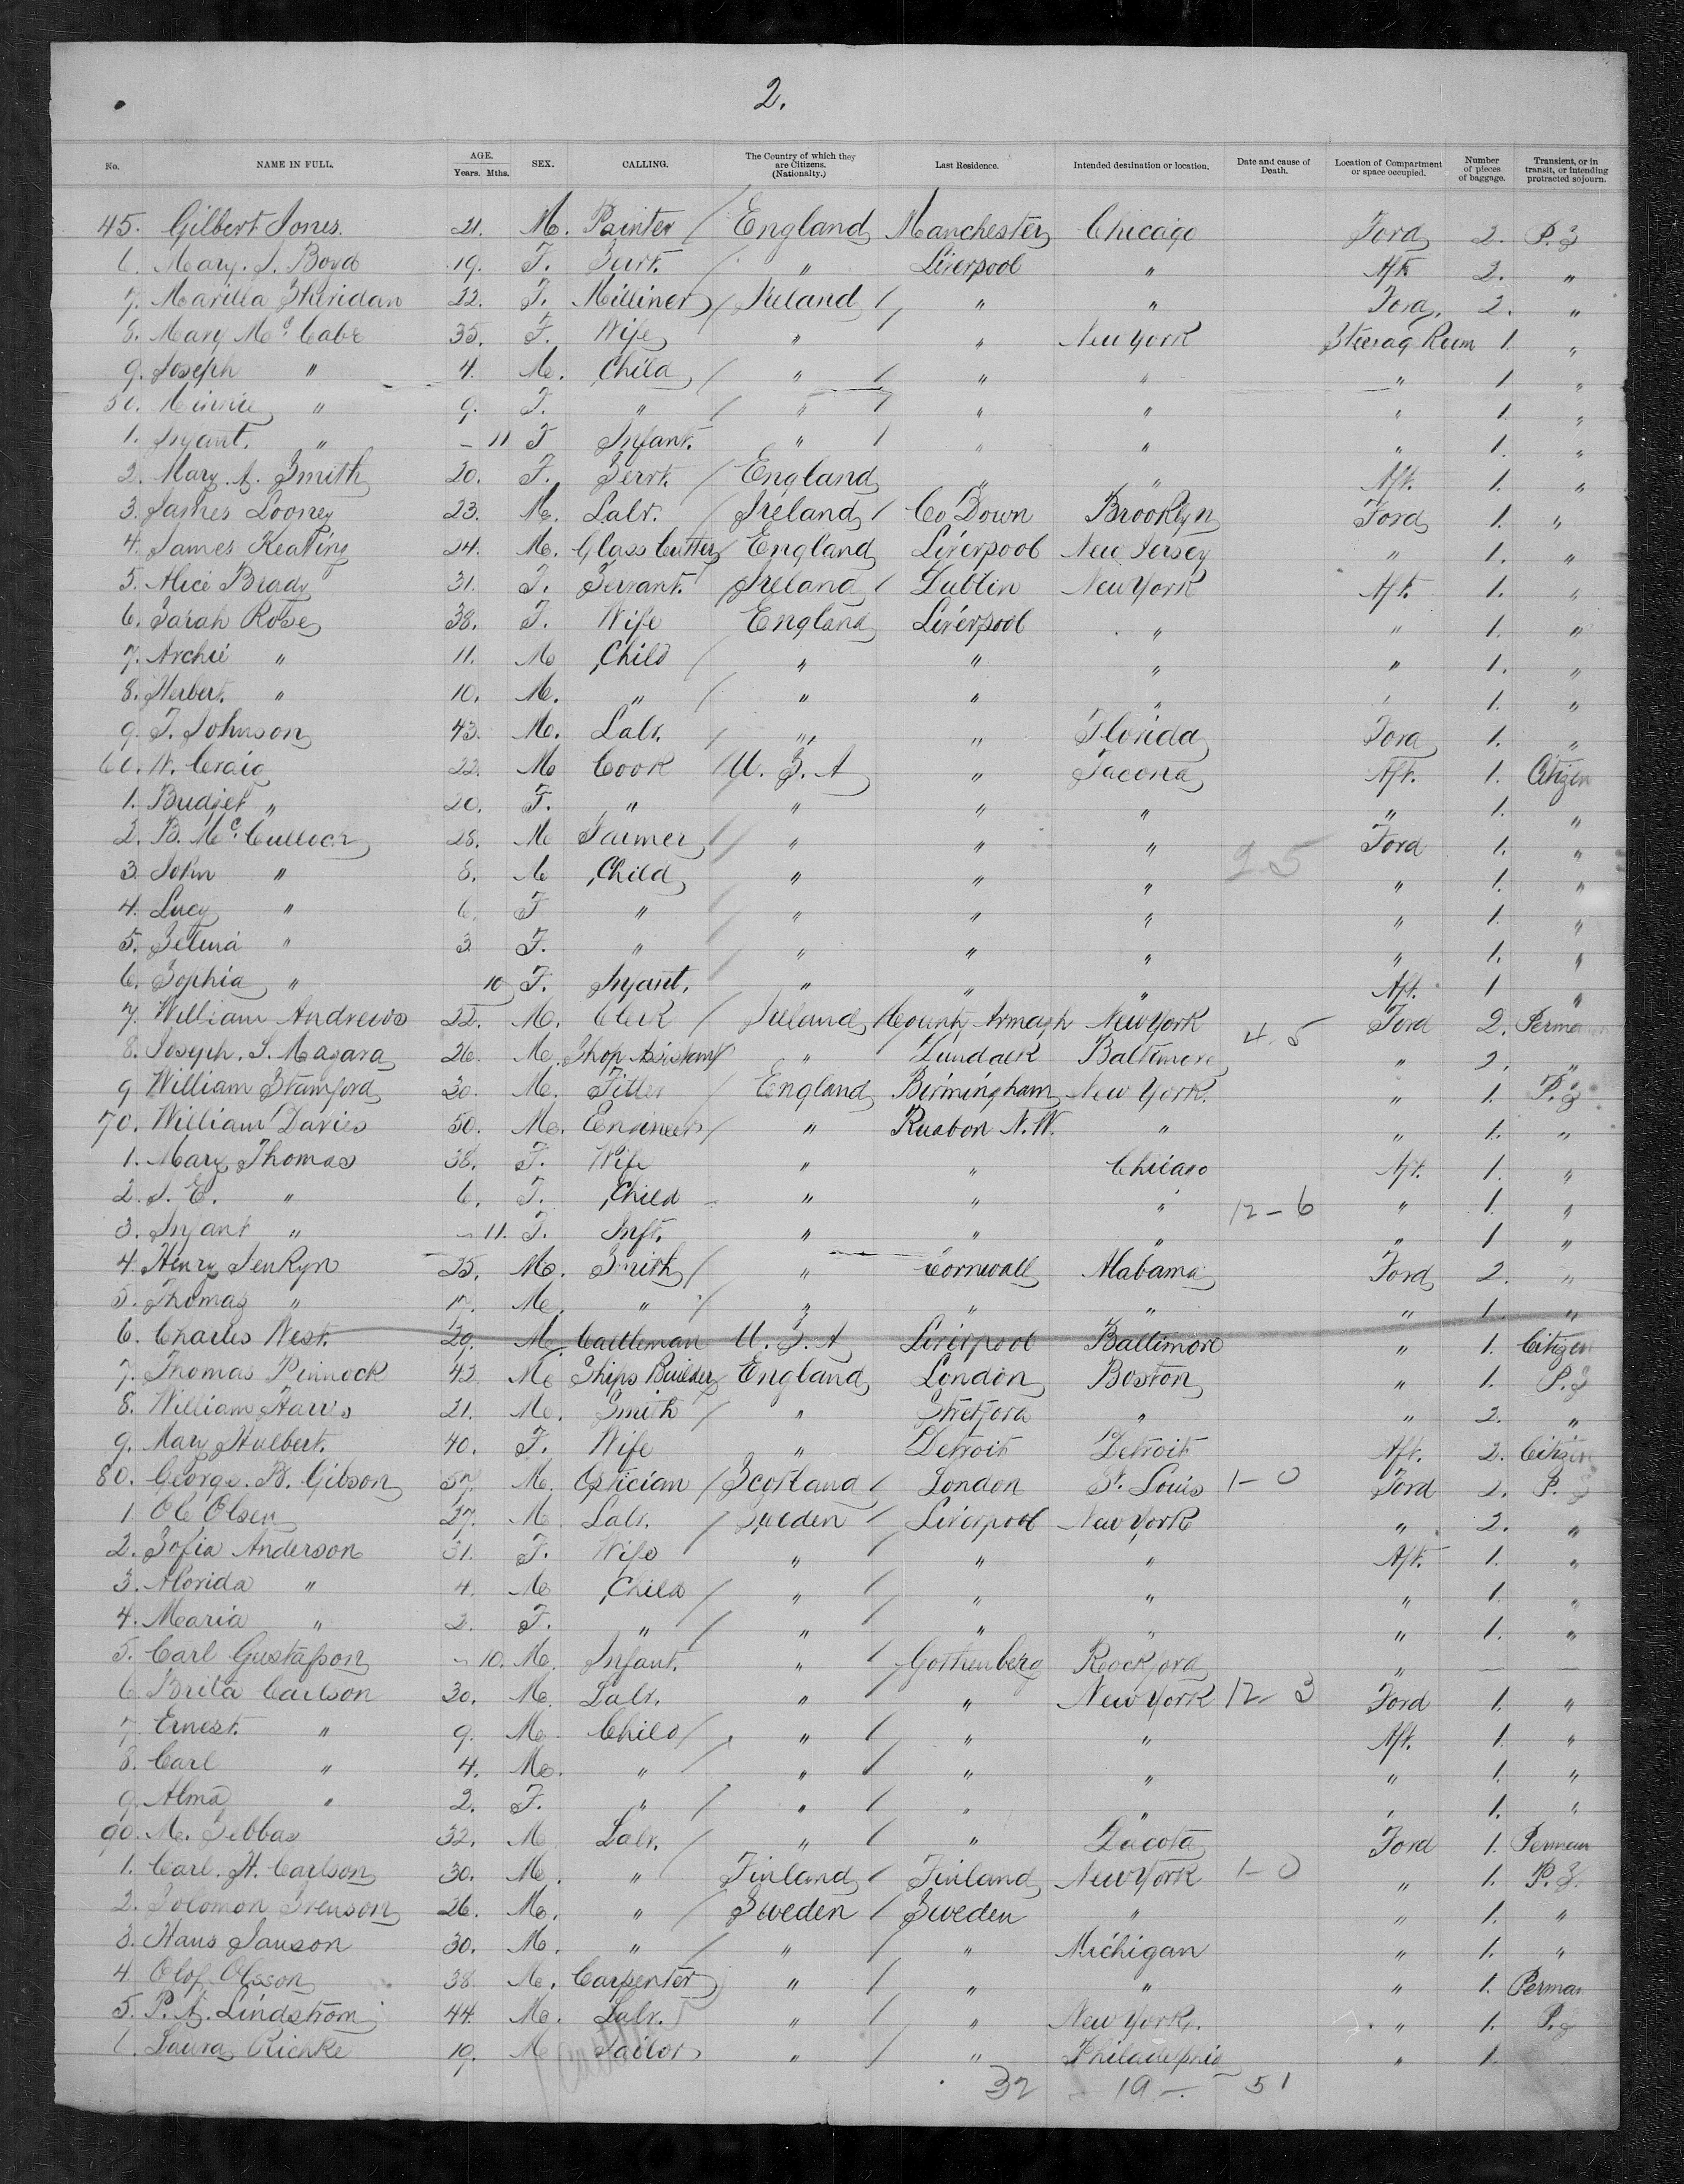 2.
No. NAME IN FULL. AGE. Years. Mths. SEX. CALLING. The Country of which they are Citizens. (Nationalty.) Last Residence. Intended destination or location. Date and cause of Death. Location of Compartment or space occupied. Number of pieces of baggage. Transient, or in transit, or intending protracted sojourn.
45. Gilbert Jones. 21. M. Painter / England Manchester Chicago Ford 2. P.S
6. Mary. J. Boyd 19. F. Servt. / " Liverpool " Aft 2. "
7. Marilla Sheridan 22. F. Milliner / Ireland / " " Ford. 2. "
8. Mary McCabe 35. F. Wife " / " New York Steerag Room 1. "
9. Joseph " 4. M. Child / " / " " " 1. "
50. Minnie " 9. F. " / " / " " " 1. "
1. Infant. " - 11 F Infant. " / " " " 1. "
2. Mary. A. Smith 20. F. Servt. / England " " Aft. 1. "
3. James Looney 23. M. Labr. / Ireland / Co Down Brooklyn Ford 1. "
4. James Keating 24. M. Glass Cutter / England Liverpool New Jersey " 1. "
5. Alice Brady 31. F. Servant. / Ireland / Dublin New York Aft. 1. "
6. Sarah Rose 38. F. Wife England Liverpool " " 1. "
7. Archie " 11. M Child / " " " " 1. "
8. Herbert. " 10. M. " / " " " " 1. "
9. T. Johnson 43. M. Labr. / " " Florida Ford 1. "
60. W. Craig 22. M Cook / U.S.A " Tacona Aft. 1. Citizen
1. Budjet " 20. F. " " " " " 1. "
2. B. McCulloch 28. M Farmer / " " " Ford 1. "
3. John " 8. M Child " " " 25 " 1. "
4. Lucy " 6. F " / " " " " 1. "
5. Selma " 3 F. " " " " " 1. "
6. Sophia " 10 F. Infant. / " " " Aft. 1 "
7. William Andrews 22. M. Clerk / Ireland County Armagh New York Ford 2. Perman
8. Joseph. S. Magara 26. M. Shop Assistant / " Dundalk Baltimore 4-5 " 2. "
9 William Stamford 30. M. Fitter / England Birmingham New York. " 1. P.S
70. William Davies 50. M. Engineer / " Ruabon N.W. " " 1. "
1. Mary Thomas 38. F. Wife " " Chicago Aft. 1. "
2. S. E. " 6. F. Child " " " 12-6 " 1. "
3. Infant " - 11. F. Inft. " " " " 1 "
4. Henry Jenkyn 25. M. Smith / " Cornwall Alabama Ford 2. "
5. Thomas " 17. M. " / " " " " 1. "
6. Charles West. 29. M. Cattleman U.S.A Liverpool Baltimore " 1. Citizen
7. Thomas Pinnock 43 M Ships Builder / England London Boston " 1. P.S
8. William Harris 21. M. Smith / " Stretford " " 2. "
9. Mary Hulbert. 40. F. Wife " Detroit Detroit Aft. 2. Citizen
80. George. B. Gibson 37. M. Optician / Scotland / London St. Louis 1-0 Ford 2. P.S
1 Ole Olsen 27. M Labr. / Sweden / Liverpool New York " 2. "
2. Sofia Anderson 31. F. Wife " / " " Aft. 1. "
3. Alorida " 4. M Child / " / " " " 1. "
4. Maria " 2. F. " / " / " " " 1. "
5. Carl Gustafson - 10. M. Infant. " / Gothenberg Rockford " — —
6. Brita Carlson 30. M. Labr. " " New York 12-3 Ford 1. "
7. Ernest. " 9. M Child / " / " " Aft. 1. "
8. Carl " 4. M. " / " / " " " 1. "
9. Alma " 2. F. " / " / " " " 1. "
90. M. Sebbas 32. M Labr. / " / " Dacota Ford 1. Perman
1. Carl. H. Carlson 30. M. " Finland / Finland New York 1-0 " 1. P.S.
2. Solomon Svenson 26. M. " / Sweden / Sweden " " 1. "
3. Hans Janson 30. M. " / " / " Michigan " 1. "
4. Olof Olsson 38. M. Carpenter " / " " " 1. Perman
5. P. A. Lindstrom 44. M. Labr. " / " New York. " 1. P.S
6. Laura Richke 19. M Tailor " / " Philadelphia " 1.
32 19 - 51